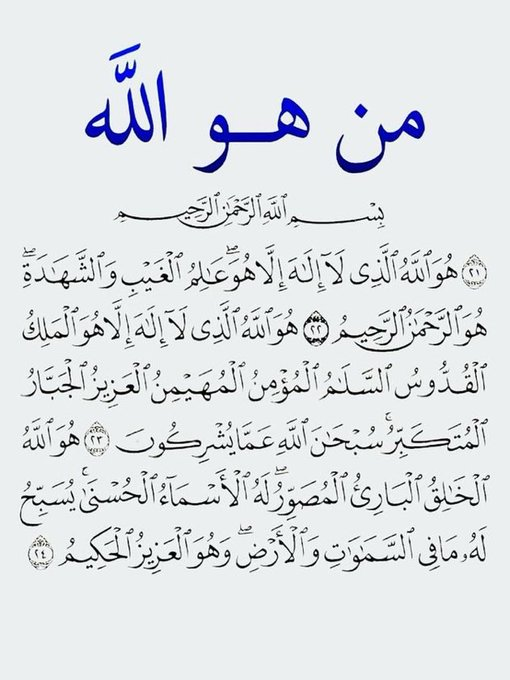 من هو الله
بِسْمِ ٱللَّهِ ٱلرَّحْمَٰنِ ٱلرَّحِيمِ
٢١ هُوَ ٱللَّهُ ٱلَّذِى لَآ إِلَٰهَ إِلَّا هُوَ ۖ عَٰلِمُ ٱلْغَيْبِ وَٱلشَّهَٰدَةِ ۖ
هُوَ ٱلرَّحْمَٰنُ ٱلرَّحِيمُ ٢٢ هُوَ ٱللَّهُ ٱلَّذِى لَآ إِلَٰهَ إِلَّا هُوَ ٱلْمَلِكُ
ٱلْقُدُّوسُ ٱلسَّلَٰمُ ٱلْمُؤْمِنُ ٱلْمُهَيْمِنُ ٱلْعَزِيزُ ٱلْجَبَّارُ
ٱلْمُتَكَبِّرُ ۚ سُبْحَٰنَ ٱللَّهِ عَمَّا يُشْرِكُونَ ٢٣ هُوَ ٱللَّهُ
ٱلْخَٰلِقُ ٱلْبَارِئُ ٱلْمُصَوِّرُ ۖ لَهُ ٱلْأَسْمَآءُ ٱلْحُسْنَىٰ ۚ يُسَبِّحُ
لَهُۥ مَا فِى ٱلسَّمَٰوَٰتِ وَٱلْأَرْضِ ۖ وَهُوَ ٱلْعَزِيزُ ٱلْحَكِيمُ ٢٤